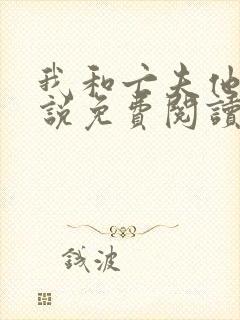 我和亡夫他
說免費閱讀
錢波